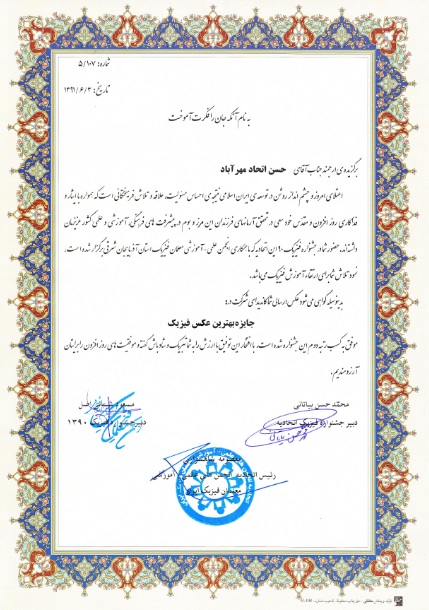 شماره: ۵/۱۰۷
تاریخ: ۱۳۹۱/۶/۳
به نام آنکه جان را فکرت آموخت
برگزیده‌ی ارجمند جناب آقای حسن اتحاد مهرآباد
اعتلای امروز و چشم انداز روشن توسعه‌ی ایران اسلامی نتیجه‌ی احساس مسئولیت، علاقه و تلاش فرهیختگانی است که همواره با ایثار و
فداکاری روز افزون و مقدس خود سعی در تحقق آرمانهای فرزندان این مرز و بوم در پیشرفت های فرهنگی، آموزشی و علمی کشور عزیزمان
داشته‌اند. حضور شما در جشنواره فیزیک ۹۰ این اتحادیه که با همکاری انجمن علمی - آموزشی معلمان فیزیک استان آذربایجان شرقی برگزار شده است،
نمود تلاش شما برای ارتقاء آموزش فیزیک می‌باشد.
بدینوسیله گواهی می‌شود عکس ارسالی شما کاندیدای شرکت در:
جایزه بهترین عکس فیزیک
موفق به کسب رتبه دوم این جشنواره شده است. با افتخار این توفیق با ارزش را به شما تبریک و شادباش گفته و موفقیت های روز افزون را برایتان
آرزومندیم.
محمد حسن بیاتانی
دبیر جشنواره فیزیک اتحادیه
دبیر جشنواره فیزیک ۱۳۹۰
معصومه
رئیس اتحادیه انجمن های علمی - آموزشی
معلمان فیزیک ایران